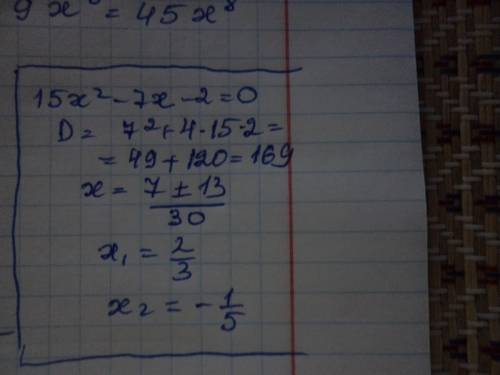 9x = 45x⁸
15x² - 7x - 2 = 0
D = 7² + 4·15·2 =
= 49 + 120 = 169
x = (7 ± 13)/30
x₁ = 2/3
x₂ = - 1/5